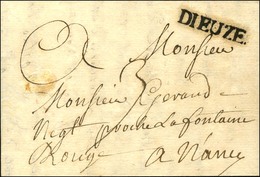 DIEUZE
Monsieur
Monsieur Gerard
Negt proche La fontaine
Rouge a Nancy